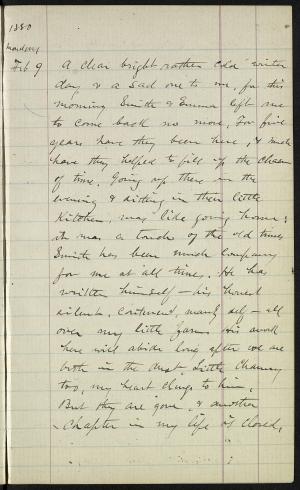 1880
Monday
Feb. 9 A clear bright rather cold winter
day & a sad one to me, for this
morning Smith & Emma left me
to come back no more. For five
years have they been here, & much
have they helped to fill up the chasm
of time. Going up there in the
evening & sitting in their little
Kitchen, was like going home;
it was a touch of the old times
Smith has been much company
for me at all times. He has
written himself – his honest
silent, continent, manly self – all
over my little farm. His work
here will abide long after we are
both in the dust. Little Channy
too, my heart clings to him.
But they are gone, & another
chapter in my life is closed,